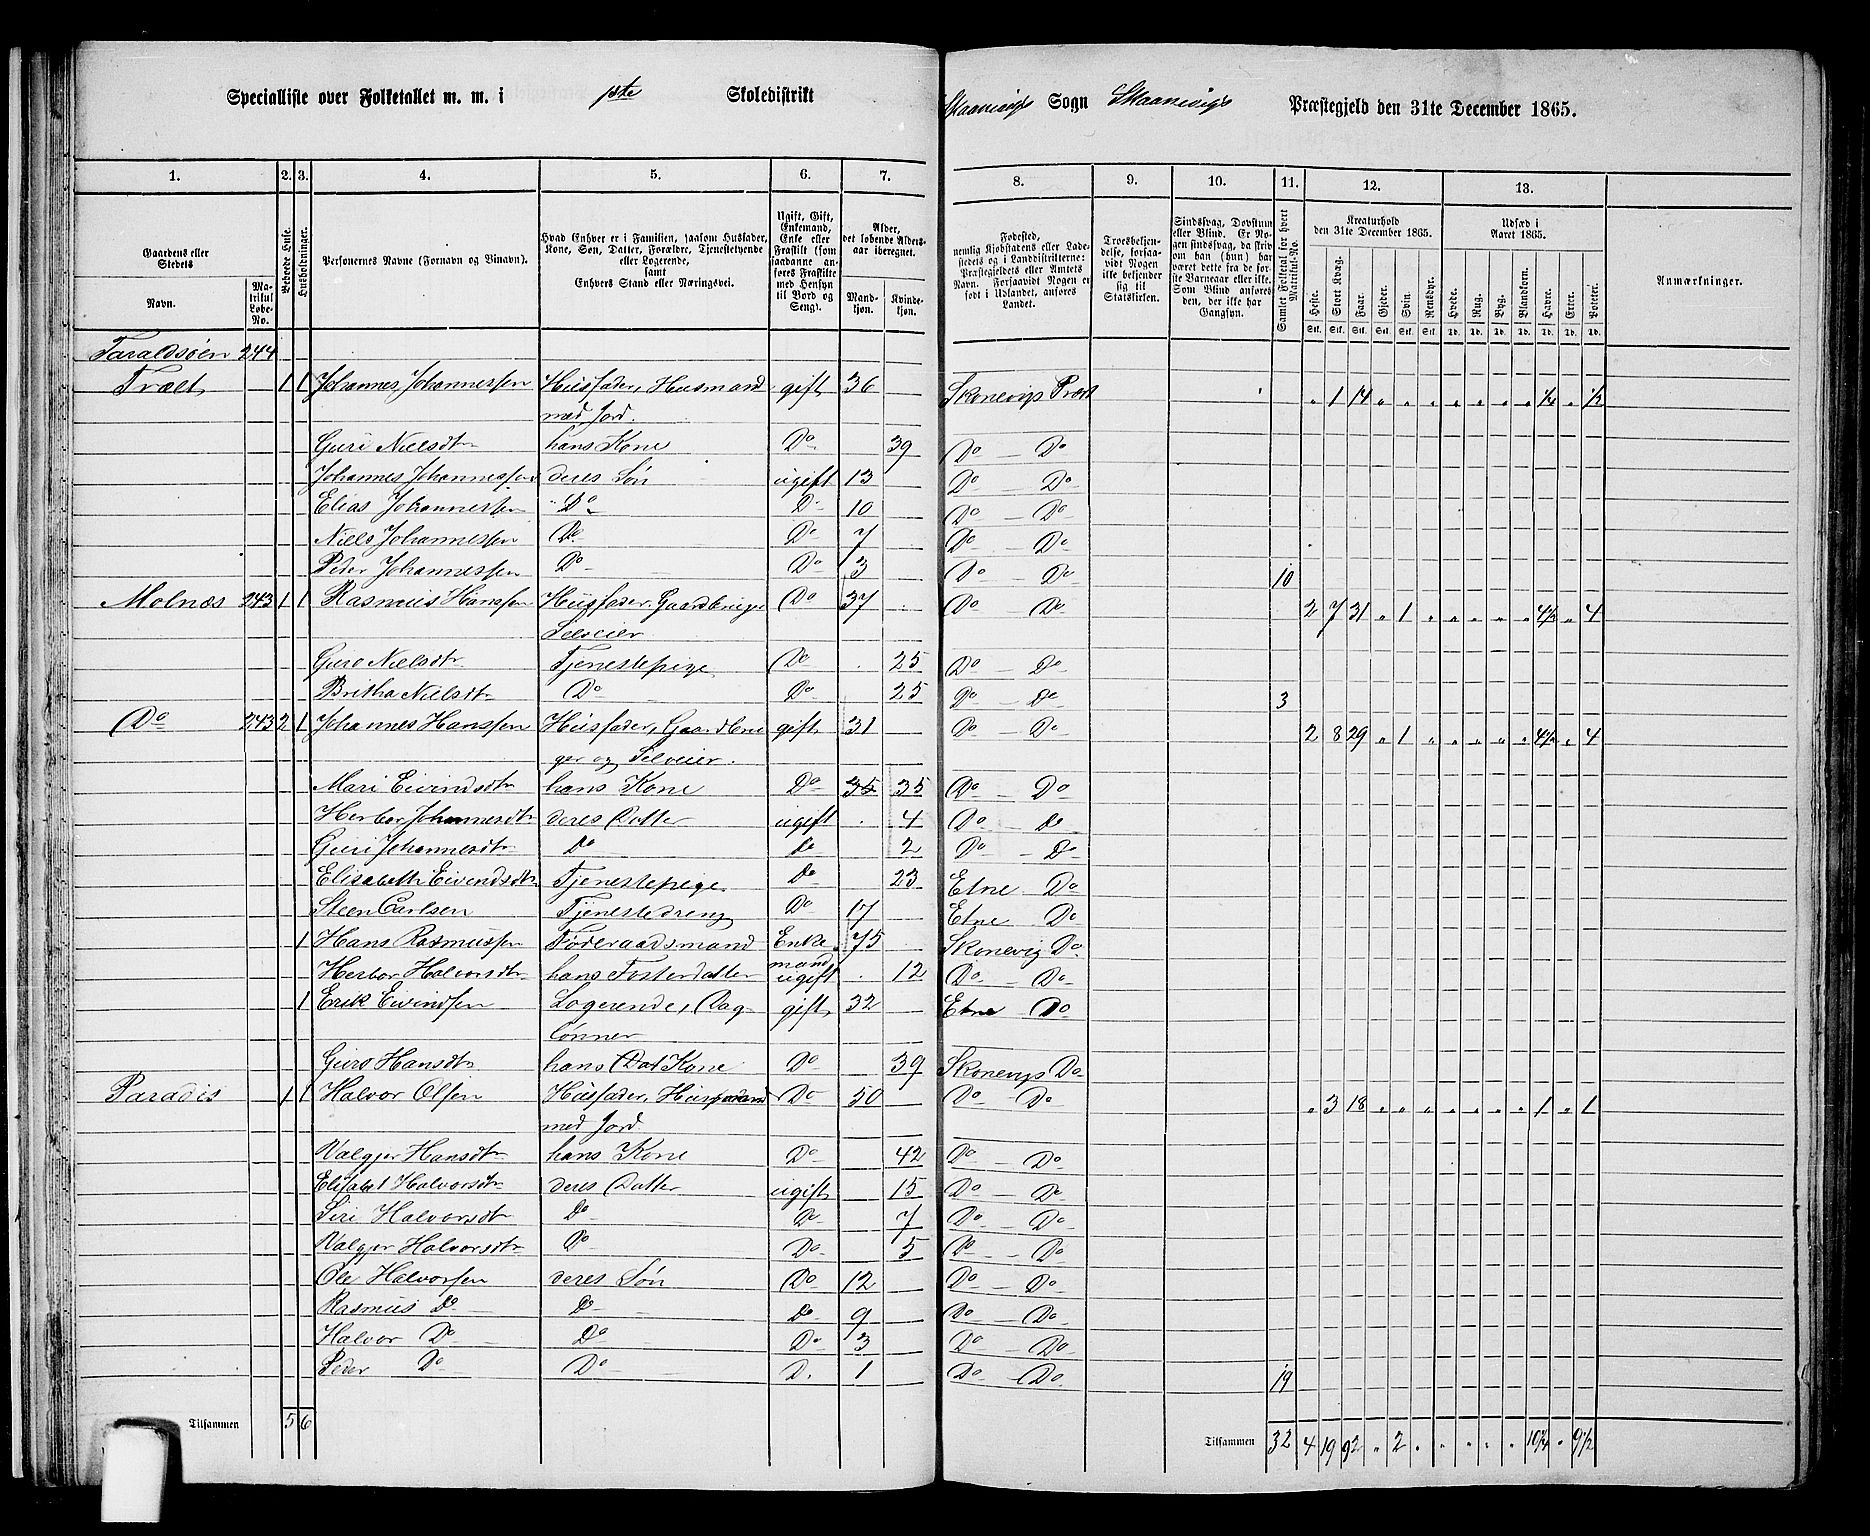 Specialliste over Folketallet m. m. i 1ste Skoledistrikt Skaanevigs Sogn Skaanevigs Præstegjeld den 31te December 1865.
1. 2. 3. 4. 5. 6. 7. 8. 9. 10. 11. 12. 13.
Gaardens eller Stedets
Navn.
Matrikul Løbe-No.
Bebøede Huse.
Husholdninger.
Personernes Navne (Fornavn og Tilnavn).
Hvad Enhver er i Familien, saasom Husfader, Kone, Søn, Datter, Forældre, Tjenestetyende eller Logerende,
samt
Enhvers Stand eller Næringsvei.
Ugift, Gift, Enkemand, Enke eller Fraskilt (som saadanne anføres Fraskilte med Hensyn til Bord og Seng).
Alder, det løbende Aldersaar iberegnet.
Mandkjøn. Kvindekjøn.
Fødested,
nemlig Kjøbstadens eller Ladestedets og i Landdistrikterne: Præstegjeldets eller Amtets Navn. Forsaavidt Nogen er født i Udlandet, anføres Landet.
Troesbekjendelse, forsaavidt Nogen ikke bekjender sig til Statskirken.
Sindssvag, Døvstum eller Blind. Er Nogen sindssvag, da skrives om han (hun) har været dette fra de første Barneaar eller ikke. Som Blind anføres den, der ikke har Gangsyn.
Samlet Folketal for hvert Matrikul-No.
Kreaturhold den 31te December 1865.
Heste. Stort Kvæg. Faar. Gjeder. Svin. Rensdyr.
Udsæd i Aaret 1865.
Hvede. Rug. Byg. Blandkorn. Havre. Erter. Poteter.
Stk. Stk. Stk. Stk. Stk. Stk. Td. Td. Td. Td. Td. Td. Td.
Anmærkninger.
Taraldsøen 244
Træet 1 1 Johannes Johannessen Husfader, Husmand gift 36 Skonevigs Præst " 1 14 " " " " " " " " ½
med Jord
Guri Nielsdtr hans Kone Do 39 Do Do
Johannes Johannessen deres Søn ugift 13 Do Do
Elias Johannessen Do Do 10 Do Do
Niels Johannessen Do Do 7 Do Do
Peder Johannessen Do Do 3 Do Do 10
Molnæs 243 1 1 Rasmus Hanssen Husfader, Gaardbruger Do 37 Do Do 2 7 31 " 1 " " " " " 4½ " 4
Selveier
Guro Nielsdtr Tjenestepige Do 25 Do Do
Britha Nielsdtr Do Do 25 Do Do 3
Do 243 2 1 Johannes Hanssen Husfader, Gaardbru gift 31 Do Do 2 8 29 " 1 " " " " " 4½ " 4
ger og Selveier
Mari Eivindsdtr hans Kone Do 35 35 Do Do
Herbor Johannesdtr deres Datter ugift 4 Do Do
Guri Johannesdtr Do Do 2 Do Do
Elisabeth Eivendsdtr Tjenestepige Do 23 Etne Do
Steen Carlsen Tjenestedreng Do 17 Etne Do
1 Hans Rasmussen Føderaadsmand Enke 75 Skonevig Do
mand
Herbor Halvorsdtr hans Fosterdatter ugift 12 Do Do
1 Erik Eivindsen Logerende, Dag gift 32 Etne Do
lønner
Guro Hansdtr hans Kone Do 39 Skonevigs Do
Paradis 1 1 Halvor Olsen Husfader, Husmand Do 50 Do Do " 3 18 " " " " " " " 1 " 1
med Jord
Valgjer Hansdtr hans Kone Do 42 Do Do
Elisabet Halvorsdtr deres Datter ugift 15 Do Do
Siri Halvorsdtr Do Do 7 Do Do
Valgjer Halvorsdtr Do Do 5 Do Do
Ole Halvorsen deres Søn Do 12 Do Do
Rasmus Do Do Do 9 Do Do
Halvor Do Do Do 3 Do Do
Peder Do Do D. 1 Do Do 19
Tilsammen 5 6 Tilsammen 32 4 19 92 " 2 " " " " " 10¼ " 9½